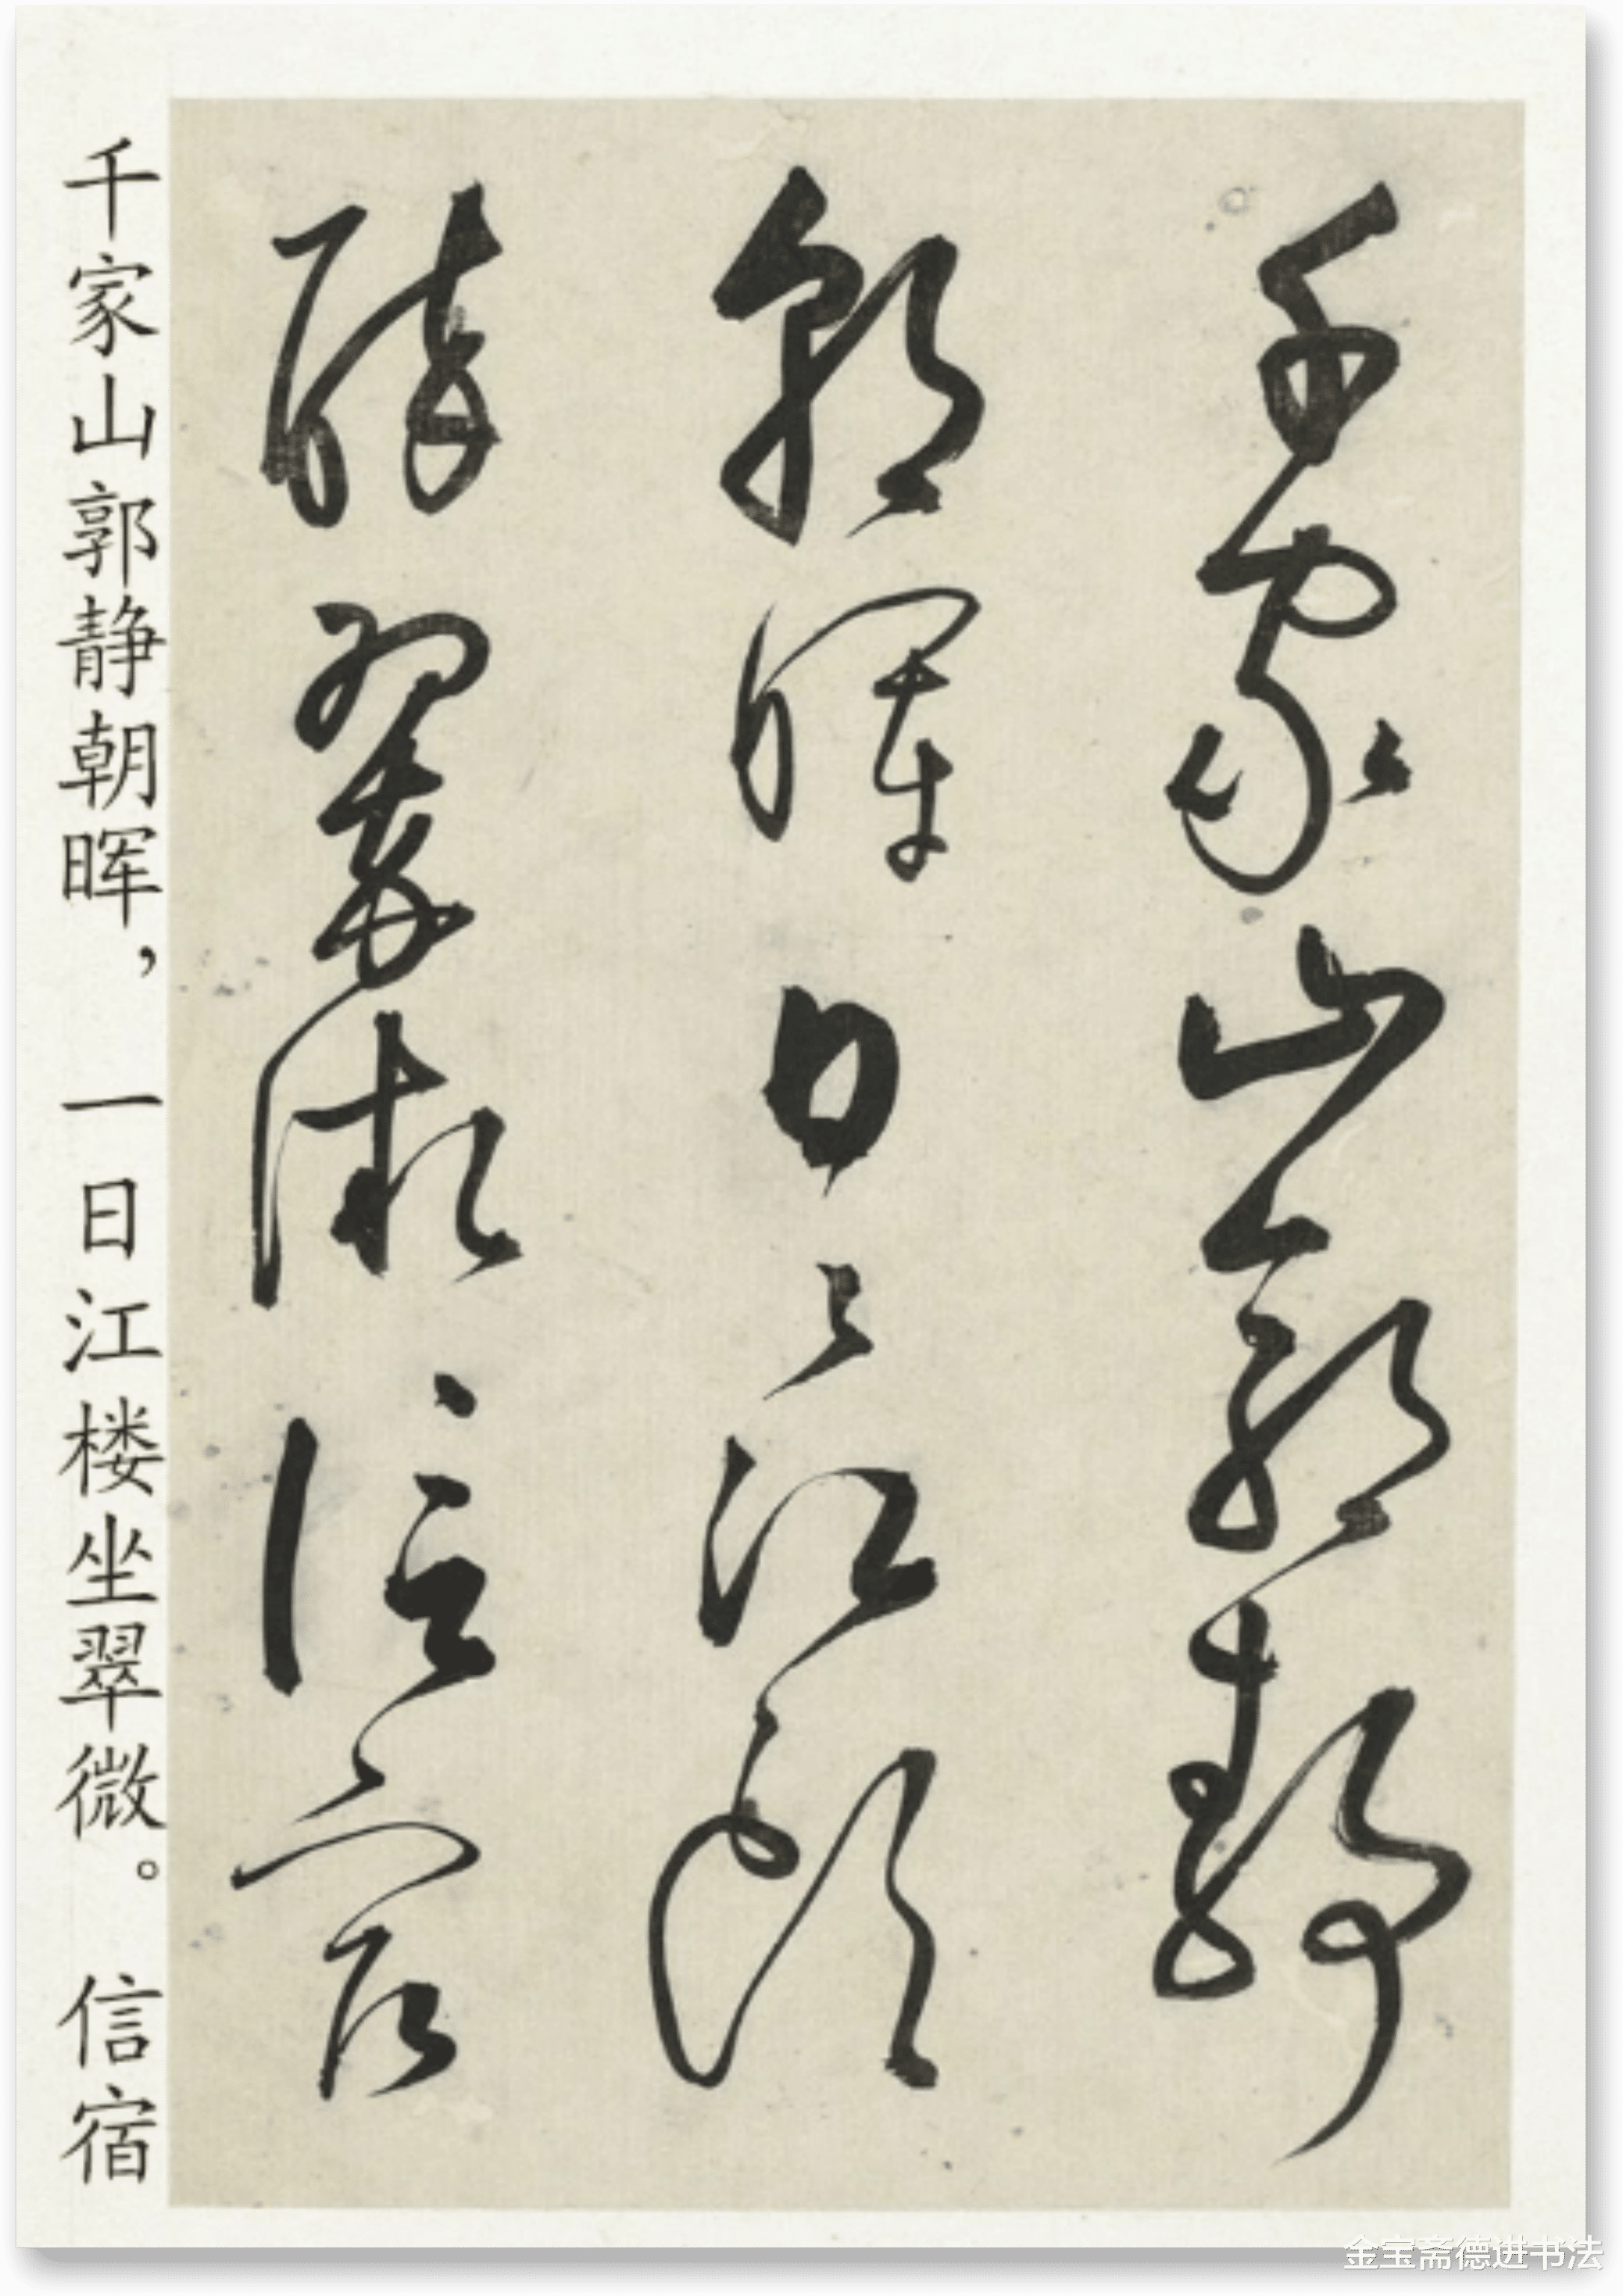 千家山郭静
朝暉日〻江頭
醉翠微信宿
千家山郭静朝晖，一日江楼坐翠微。信宿
金宝斋德进书法